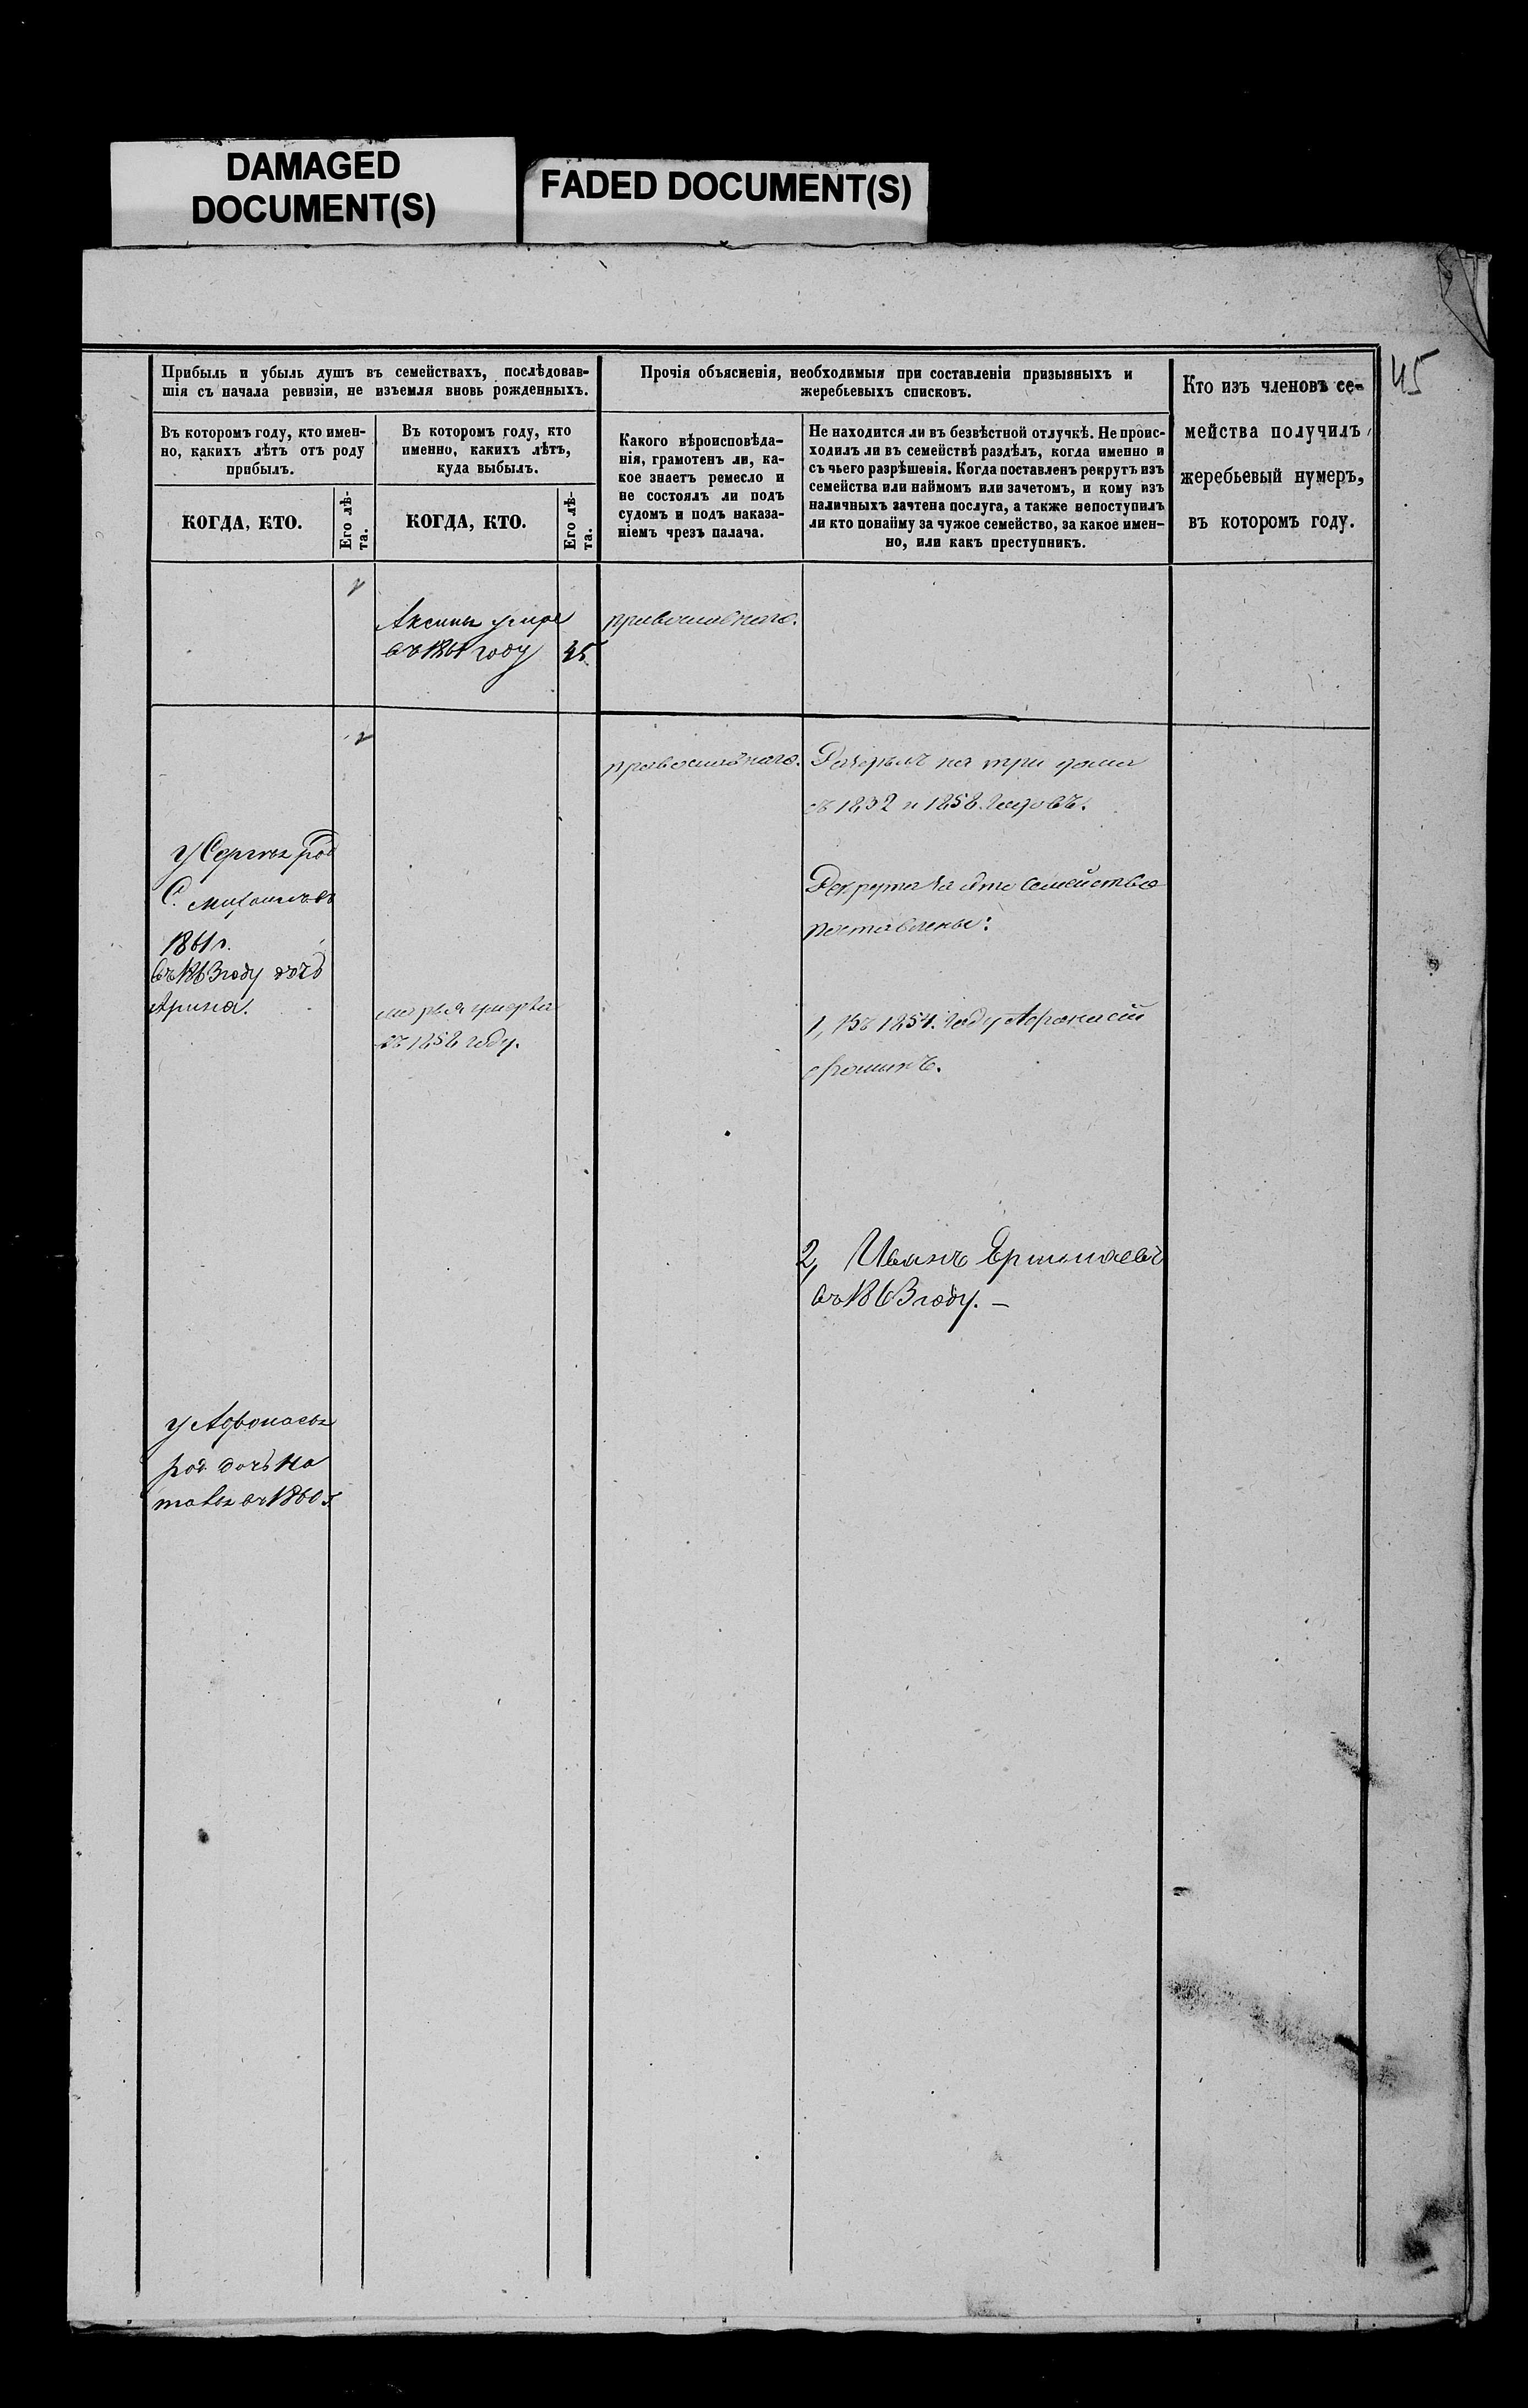 DAMAGED
DOCUMENT(S)
FADED DOCUMENT(S)
45
Прибыль и убыль душъ въ семействахъ, послѣдовав-
шія съ начала ревизіи, не изъемля вновь рожденныхъ.
Въ которомъ году, кто имен-
но, какихъ лѣтъ отъ роду
прибылъ.
КОГДА, КТО.
Его лѣ-
та.
Въ которомъ году, кто
именно, какихъ лѣтъ,
куда выбылъ.
КОГДА, КТО.
Его лѣ-
та.
Прочія объясненія, необходимыя при составленіи призывныхъ и
жеребьевыхъ списковъ.
Какого вѣроисповѣда-
нія, грамотенъ ли, ка-
кое знаетъ ремесло и
не состоялъ ли подъ
судомъ и подъ наказа-
ніемъ чрезъ палача.
Не находится ли въ безвѣстной отлучкѣ. Не проис-
ходилъ ли въ семействѣ раздѣлъ, когда именно и
съ чьего разрѣшенія. Когда поставленъ рекрутъ изъ
семейства или наймомъ или зачетомъ, и кому изъ
наличныхъ зачтена послуга, а также непоступилъ
ли кто понайму за чужое семейство, за какое имен-
но, или какъ преступникъ.
Кто изъ членовъ се-
мейства получилъ
жеребьевый нумеръ,
въ которомъ году.
въ 1861 году
православнаго.
православнаго.
на три
съ 1832 и 1858. годовъ.
у Сергѣя род
С. Михаилъ въ
1861 г.
въ 1863 году дочь
Арина.
Марья умерла
въ 1858 году.
Рекрута за это семейство
поставлены:
1, Въ 1854. году Афонасій
2, Иванъ
въ 1863 году. —
у Афонасья
род дочь На
талья въ 1860 г.